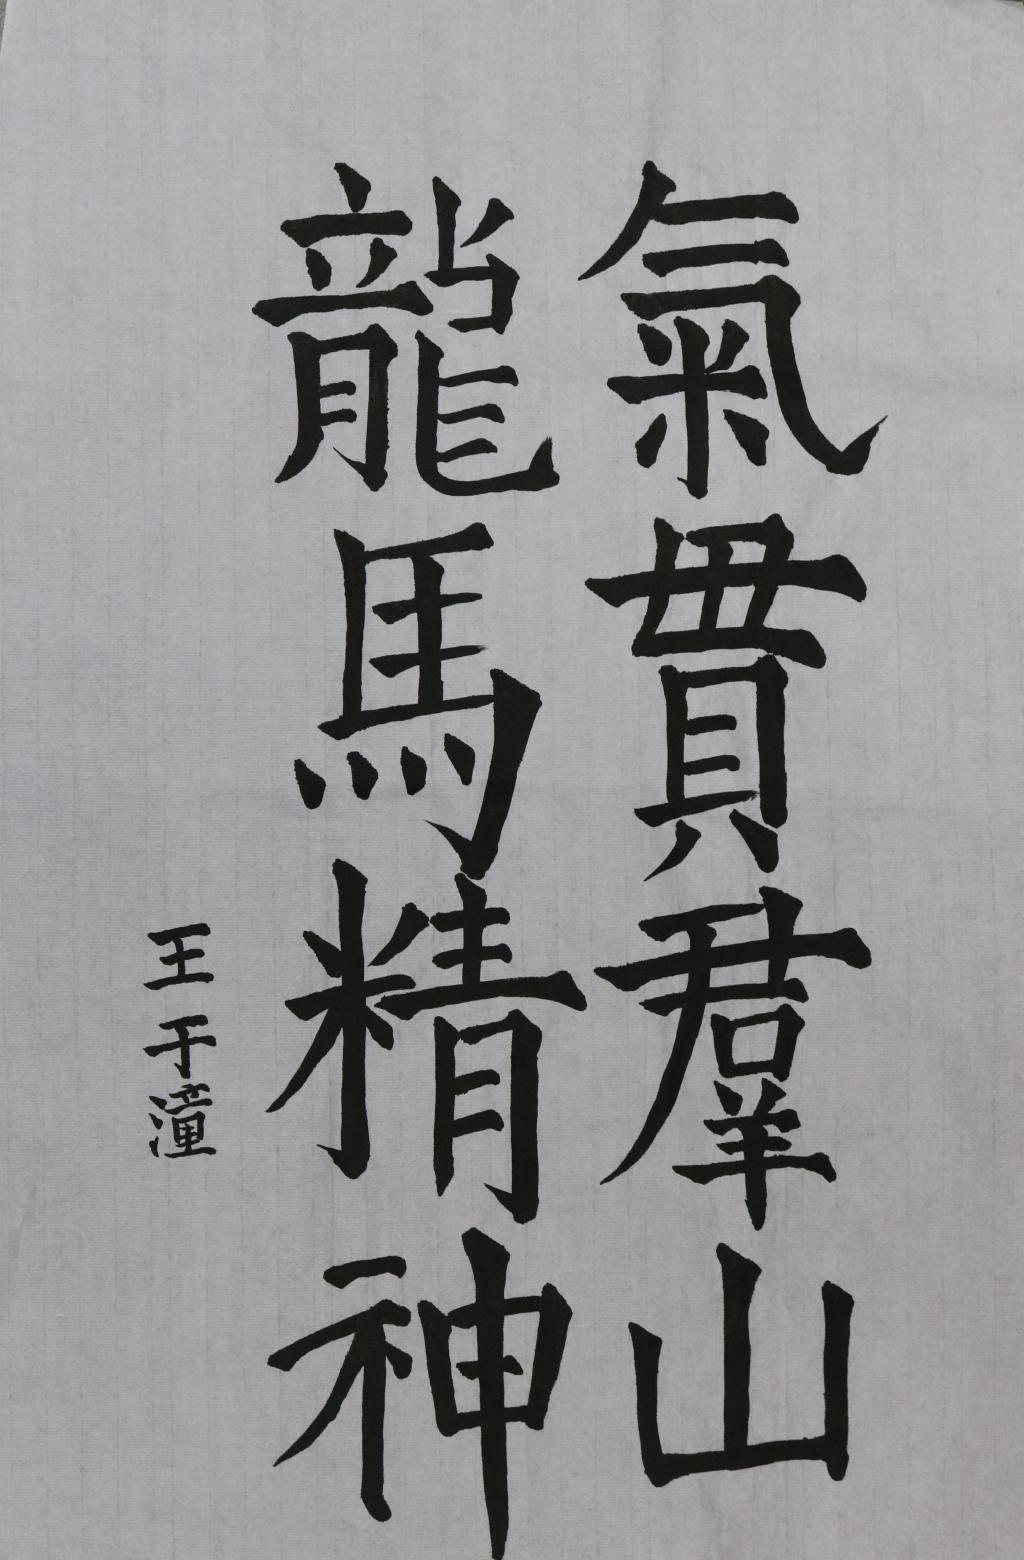 氣貫羣山
龍馬精神
王于潼